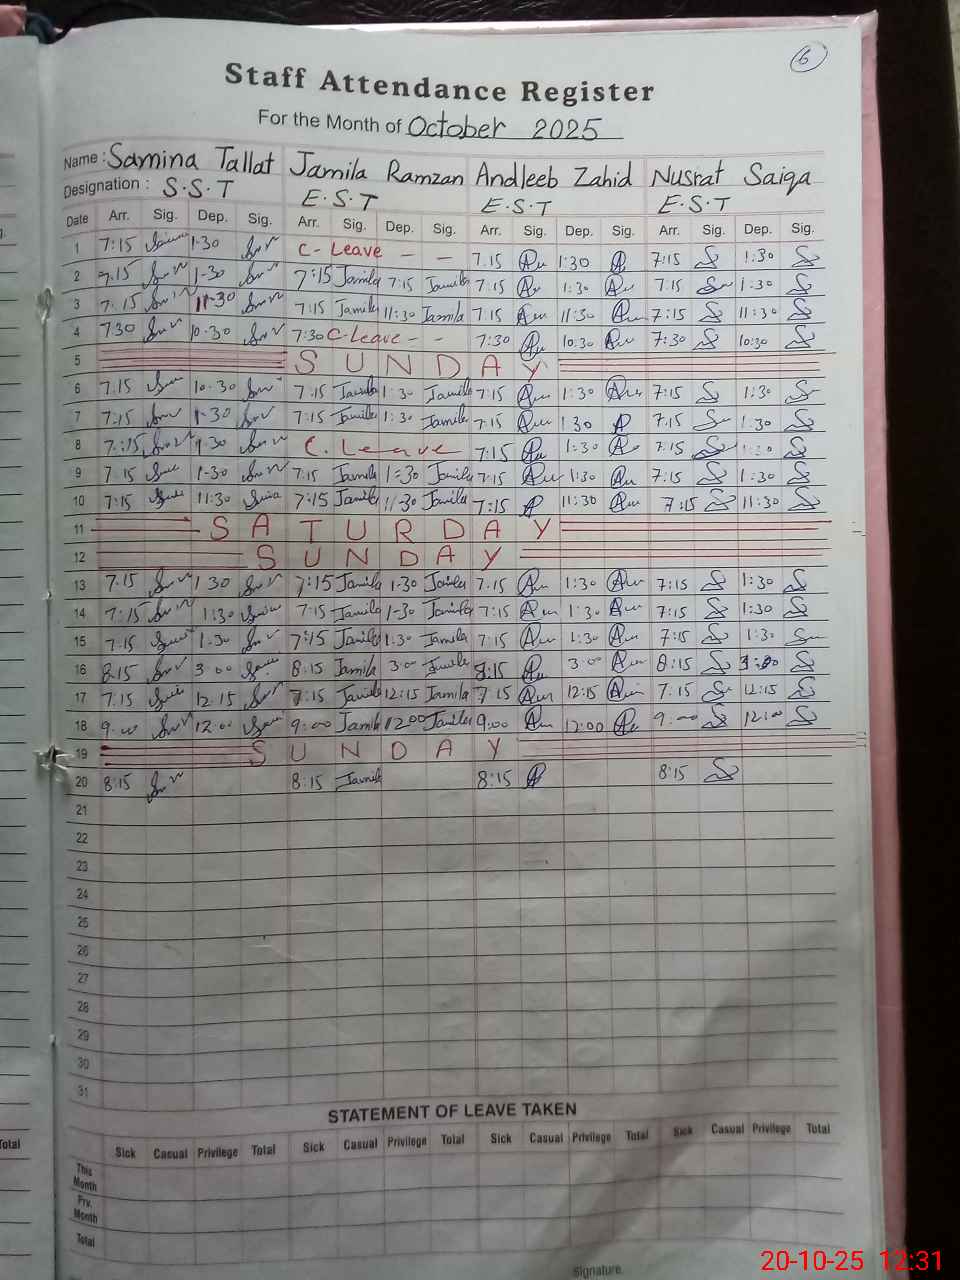 6
Staff Attendance Register
For the Month of October 2025
Name : Samina Tallat Jamila Ramzan Andleeb Zahid Nusrat Saiqa
Designation : S.S.T E.S.T E.S.T E.S.T
Date Arr. Sig. Dep. Sig. Arr. Sig. Dep. Sig. Arr. Sig. Dep. Sig. Arr. Sig. Dep. Sig.
1 7:15 1-30 C-Leave - - 7.15 1:30 7:15 1:30
2 7.15 1-30 7:15 Jamila 7:15 Jamila 7.15 1:30 7.15 1:30
3 7.15 11-30 7:15 Jamila 11:30 Jamila 7.15 11:30 7:15 11:30
4 730 10-30 7:30 C-Leave - - 7:30 10:30 7:30 10:30
5 SUNDAY
6 7.15 10-30 7.15 Jamila 1:30 Jamila 7:15 1:30 7:15 1:30
7 7:15 1-30 7:15 Jamila 1:30 Jamila 7:15 1:30 7.15 1:30
8 7:15 1.30 C. Leave 7:15 1:30 7.15
9 7.15 1-30 7:15 Jamila 1:30 Jamila 7:15 1:30 7:15 1:30
10 7:15 11:30 7:15 Jamila 11-30 Jamila 7:15 11:30 7:15 11:30
11 SATURDAY
12 SUNDAY
13 7.15 1 30 7:15 Jamila 1-30 Jamila 7.15 1:30 7:15 1:30
14 7:15 1:30 7:15 Jamila 1-30 Jamila 7:15 1:30 7:15 1:30
15 7.15 1.30 7:15 Jamila 1:30 Jamila 7:15 1:30 7:15 1:30
16 8.15 3.00 8:15 Jamila 3.00 Jamila 8:15 3.00 8:15 3:00
17 7.15 12.15 7:15 Jamila 12:15 Jamila 7.15 12:15 7.15 12:15
18 9.00 12.00 9:00 Jamila 12 00 Jamila 9.00 12:00 9:00 12:00
19 SUNDAY
20 8:15 8:15 Jamila 8:15 8:15
21
22
23
24
25
26
27
28
29
30
31
STATEMENT OF LEAVE TAKEN
Total Sick Casual Privilege Total Sick Casual Privilege Total Sick Casual Privilege Total Sick Casual Privilege Total
This Month
Prv. Month
Total
Signature
20-10-25 12:31